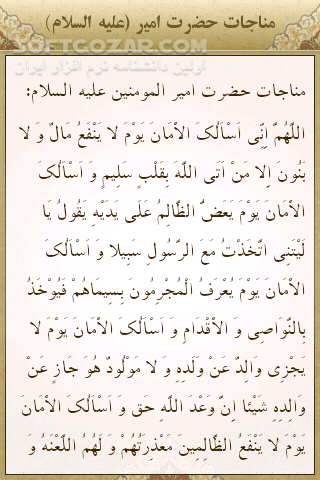 مناجات حضرت امیر (علیه السلام)
SOFTGOZAR.COM
اولین دانشنامه نرم افزار ایران
مناجات حضرت امیر المومنین علیه السلام:
اللَّهُمَّ اِنِّی اَسْاَلُکَ الْاَمَانَ یَوْمَ لا یَنْفَعُ مَالٌ وَ لا
بَنُونَ اِلا مَنْ اَتَی اللَّهَ بِقَلْبٍ سَلِیمٍ وَ اَسْاَلُکَ
الْاَمَانَ یَوْمَ یَعَضُّ الظَّالِمُ عَلَی یَدَیْهِ یَقُولُ یَا
لَیْتَنِی اتَّخَذْتُ مَعَ الرَّسُولِ سَبِیلا وَ اَسْاَلُکَ
الْاَمَانَ یَوْمَ یُعْرَفُ الْمُجْرِمُونَ بِسِیمَاهُمْ فَیُوْخَذُ
بِالنَّوَاصِی وَ الْاَقْدَامِ وَ اَسْاَلُکَ الْاَمَانَ یَوْمَ لا
یَجْزِی وَالِدٌ عَنْ وَلَدِهِ وَ لا مَوْلُودٌ هُوَ جَازٍ عَنْ
وَالِدِهِ شَیْئا اِنَّ وَعْدَ اللَّهِ حَق وَ اَسْاَلُکَ الْاَمَانَ
یَوْمَ لا یَنْفَعُ الظَّالِمِینَ مَعْذِرَتُهُمْ وَ لَهُمُ اللَّعْنَهُ وَ